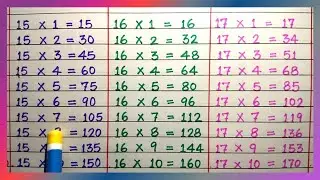 15 × 1 = 15 16 × 1 = 16 17 × 1 = 17
15 × 2 = 30 16 × 2 = 32 17 × 2 = 34
15 × 3 = 45 16 × 3 = 48 17 × 3 = 51
15 × 4 = 60 16 × 4 = 64 17 × 4 = 68
15 × 5 = 75 16 × 5 = 80 17 × 5 = 85
15 × 6 = 90 16 × 6 = 96 17 × 6 = 102
15 × 7 = 105 16 × 7 = 112 17 × 7 = 119
15 × = 120 16 × 8 = 128 17 × 8 = 136
15 = 135 16 × 9 = 144 17 × 9 = 153
15 = 150 16 × 10 = 160 17 × 10 = 170